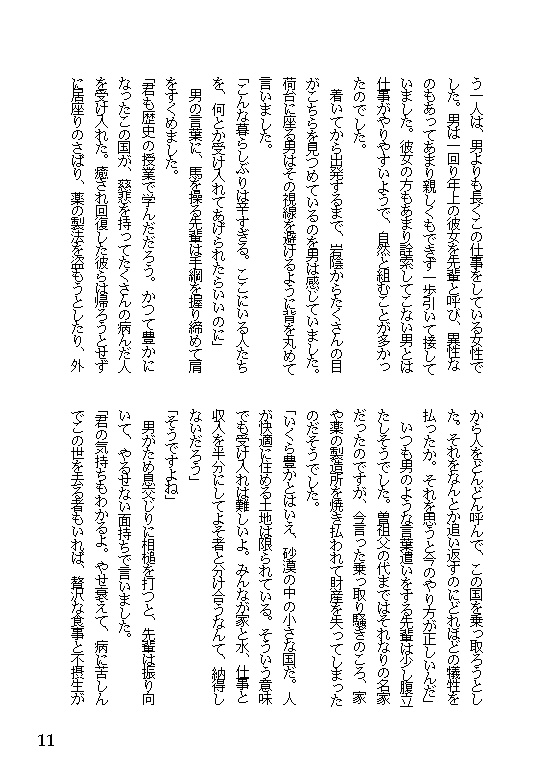 う一人は、男よりも長くこの仕事をしている女性で
した。男は一回り年上の彼女を先輩と呼び、異性な
のもあってあまり親しくもできず一歩引いて接して
いました。彼女の方もあまり詮索してこない男とは
仕事がやりやすいようで、自然と組むことが多かっ
たのでした。
　着いてから出発するまで、岩陰からたくさんの目
がこちらを見つめているのを男は感じていました。
荷台に座る男はその視線を避けるように背を丸めて
言いました。
「こんな暮らしぶりは辛すぎる。ここにいる人たち
を、何とか受け入れてあげられたらいいのに」
　男の言葉に、馬を操る先輩は手綱を握り締めて肩
をすくめました。
「君も歴史の授業で学んだだろう。かつて豊かに
なったこの国が、慈悲を持ってたくさんの病んだ人
を受け入れた。癒され回復した彼らは帰ろうとせず
に居座りのさばり、薬の製法を盗もうとしたり、外
から人をどんどん呼んで、この国を乗っ取ろうとし
た。それをなんとか追い返すのにどれほどの犠牲を
払ったか。それを思うと今のやり方が正しいんだ」
　いつも男のような言葉遣いをする先輩は少し腹立
たしそうでした。曽祖父の代まではそれなりの名家
だったのですが、今言った乗っ取り騒ぎのころ、家
や薬の製造所を焼き払われて財産を失ってしまった
のだそうでした。
「いくら豊かとはいえ、砂漠の中の小さな国だ。人
が快適に住める土地は限られている。そういう意味
でも受け入れは難しいよ。みんなが家と水、仕事と
収入を半分にしてよそ者と分け合うなんて、納得し
ないだろう」
「そうですよね」
　男がため息交じりに相槌を打つと、先輩は振り向
いて、やるせない面持ちで言いました。
「君の気持ちもわかるよ。やせ衰えて、病に苦しん
でこの世を去る者もいれば、贅沢な食事と不摂生が
11